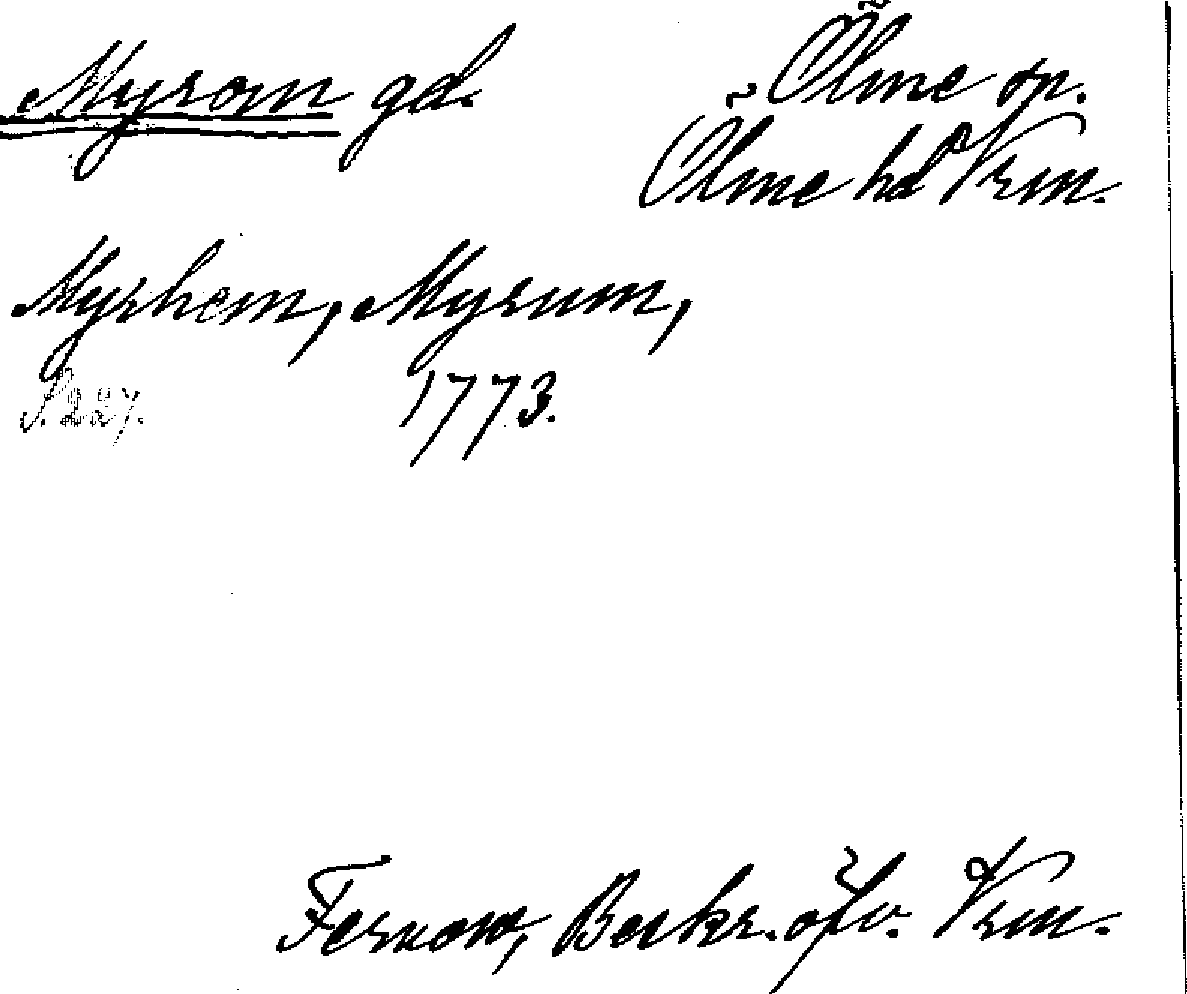 Myrom gd.
Ölme sn.
Ölme hd Vrm.
Myrhem, Myrum,
S. 227.
1773.
Fernow, Beskr. öfv. Vrm.